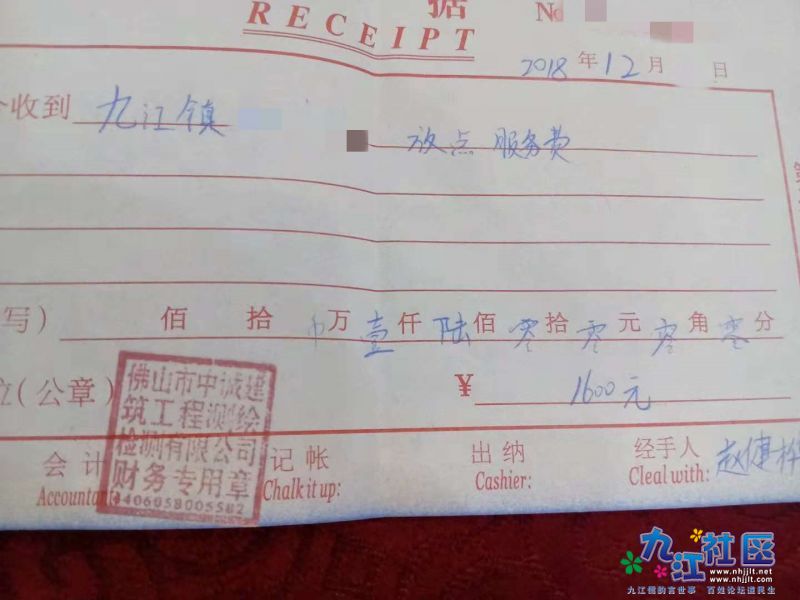 据 №
RECEIPT
2018年12月 日
收到 九江镇 放点 服务费
写) 佰 拾 万壹仟陆佰零拾零元零角零分
(公章) ¥ 1600元
佛山市中诚建
筑工程测绘
检测有限公司
财务专用章
4406058005582
会计 记帐 出纳 经手人
Accountant: Chalk it up: Cashier: Cleal with: 赵健
九江社区
www.nhjjlt.net
www.nhjjlt.com
九江儒韵言世事 百姓论坛道民生